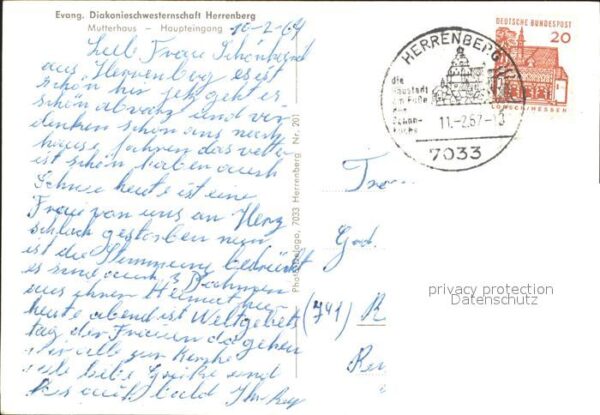 Evang. Diakonieschwesternschaft Herrenberg
Mutterhaus — Haupteingang
10-2-67
Liebe Frau
aus Herrenberg es ist
schön hir jetz geht es
schön abwarz und wir
denken schon ans nach
hause fahren das Wetter
ist schön haben auch
Schnee heute ist eine
Frau von uns an Herz
schlach gestorben nun
ist die Stemmung bedrückt
es sind auch 3
aus ihrer Heimat hir
heute abend ist Weltgebets
tag der Frauen da gehen
wir alle zur Kirche
viele liebe Grüße und
bald Ihr
Nr. 201
7033 Herrenberg
HERRENBERG
die
Baustadt
am Fuße
des
Schön-
buchs
11.-2.67-13
7033
DEUTSCHE BUNDESPOST
20
LORSCH/HESSEN
Frau
God
(741) R
Reu
privacy protection
Datenschutz